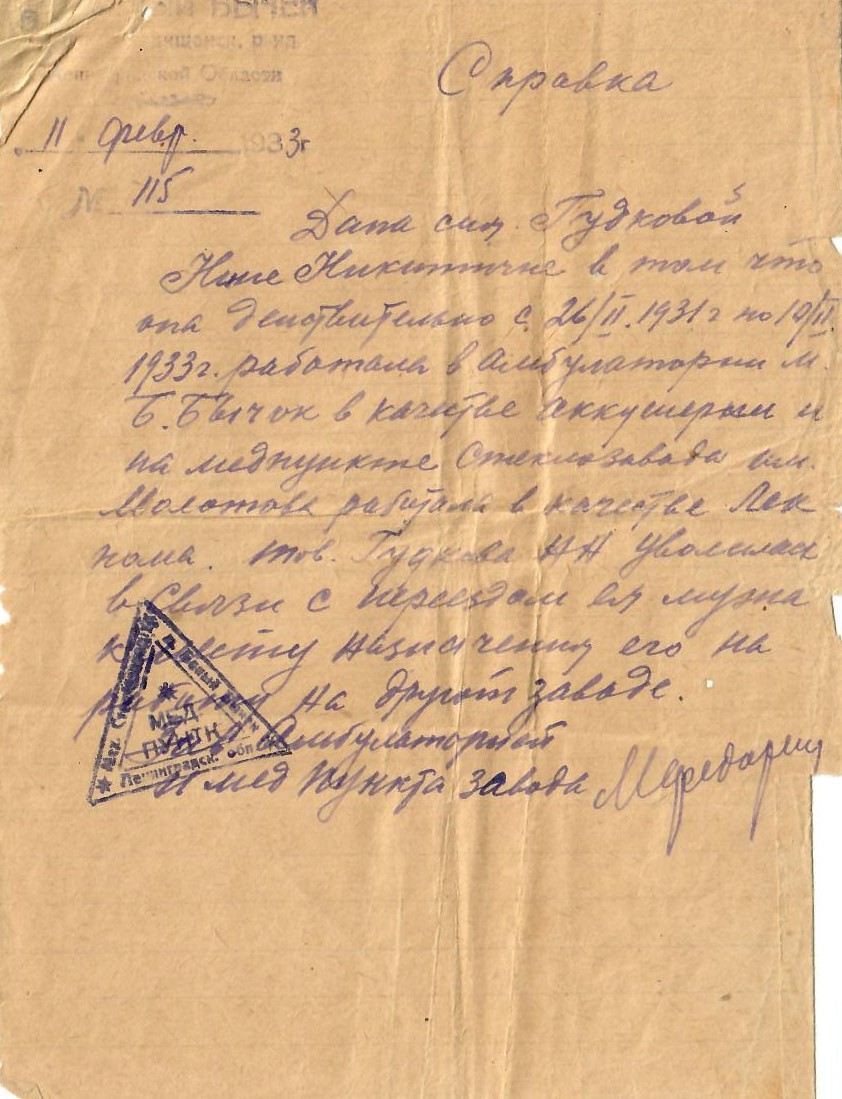 БЫЧЕК
Области
Справка
11 февр. 1933г
№ 115
Дана сия Гудковой
Нине Никитичне в том что
она действительно с 26/II.1931г по 10/II.
1933г. работала в Амбулатории м.
Б. Бычок в качестве Аккушерки и
на медпункте Стеклозавода им.
Молотова работала в качестве Лек
пома. тов. Гудкова НН уволилась
в Связи с переездом ея мужа
к месту назначения его на
работу на другом заводе.
Амбулаторией
и мед пункта завода
МЕД
ПУНКТ
Ленинградск. обл.